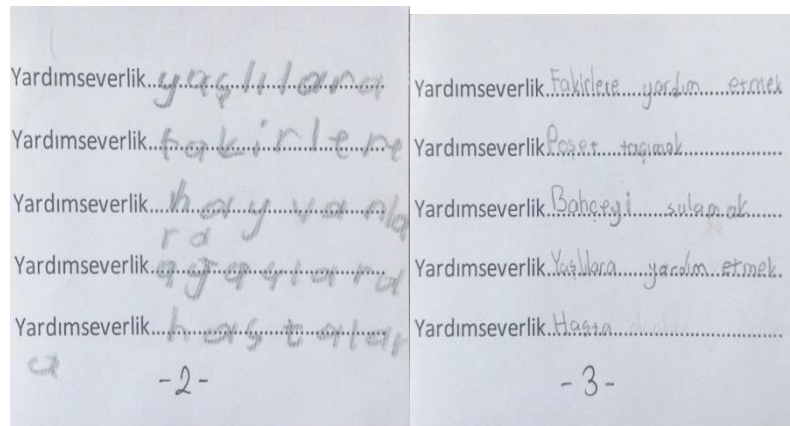 Yardımseverlik...yaşlılara
Yardımseverlik...fakirlere
Yardımseverlik...hayvanla
ra
Yardımseverlik...ağaçlara
Yardımseverlik...hastalar
a
-2-
Yardımseverlik.Fakirlere yardım etmek
Yardımseverlik.Poşet taşımak
Yardımseverlik.Bahçeyi sulamak
Yardımseverlik.Yaşlılara yardım etmek.
Yardımseverlik.Hasta
-3-